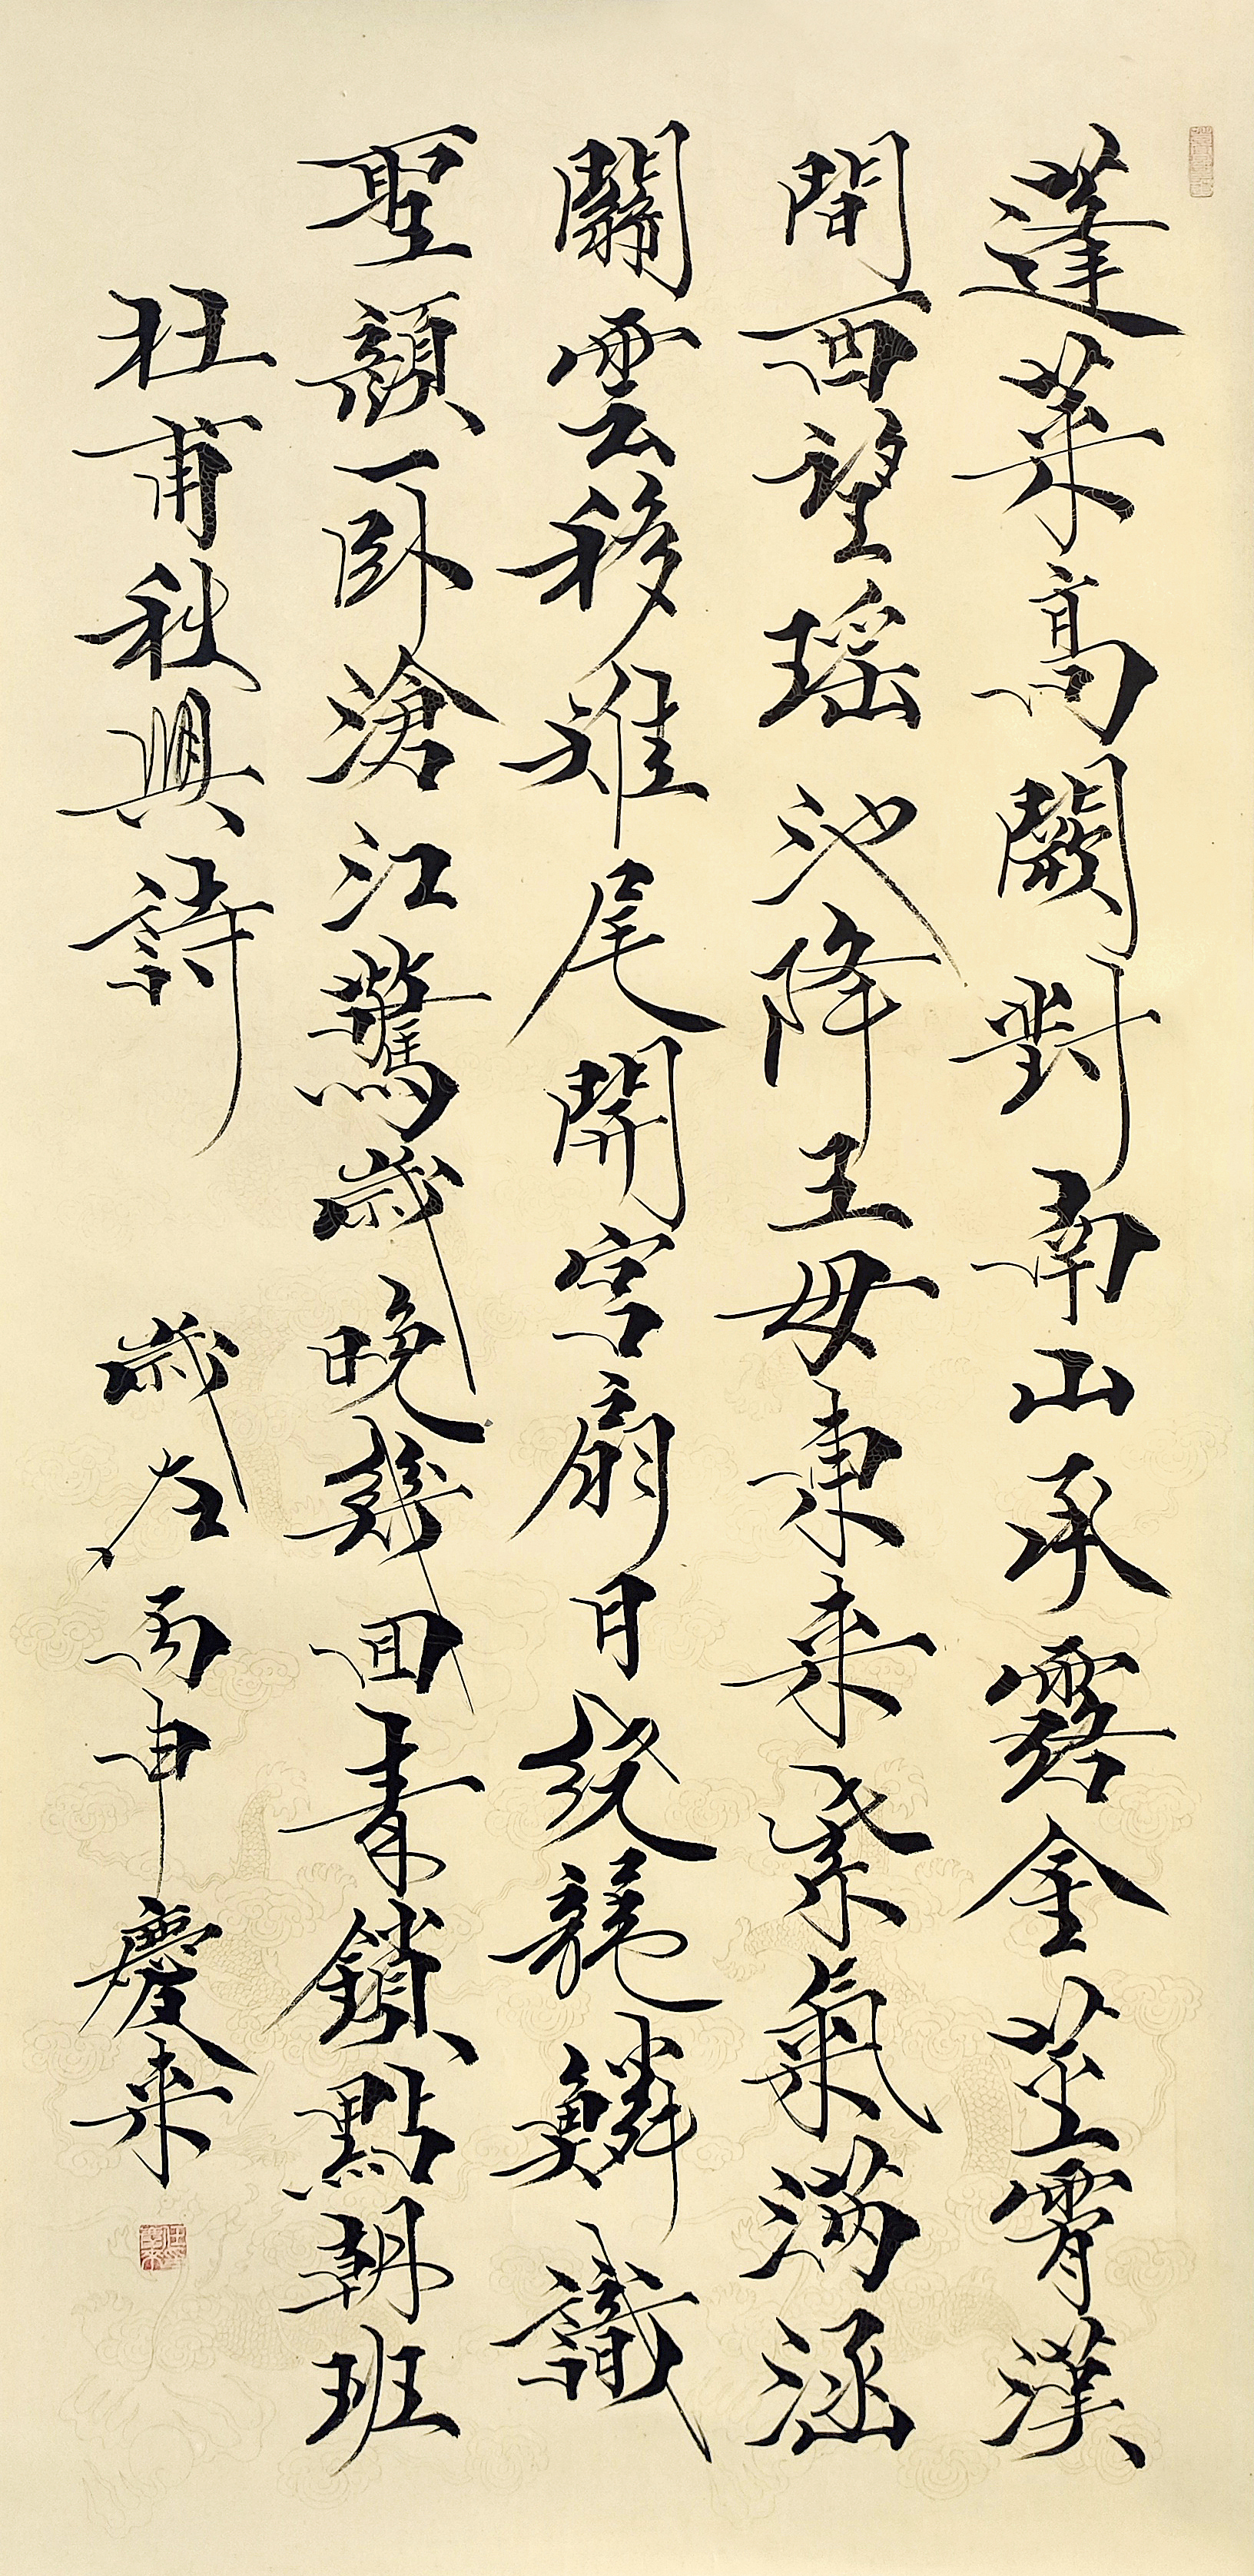 蓬莱高闕對南山承露金茎霄漢
間西望瑶池降王母東来紫氣满涵
關雲移雉尾開宫扇日繞龍鱗識
聖顔一卧滄江驚歲晚幾回青鎖點朝班
杜甫秋興詩 歲在丙申慶来